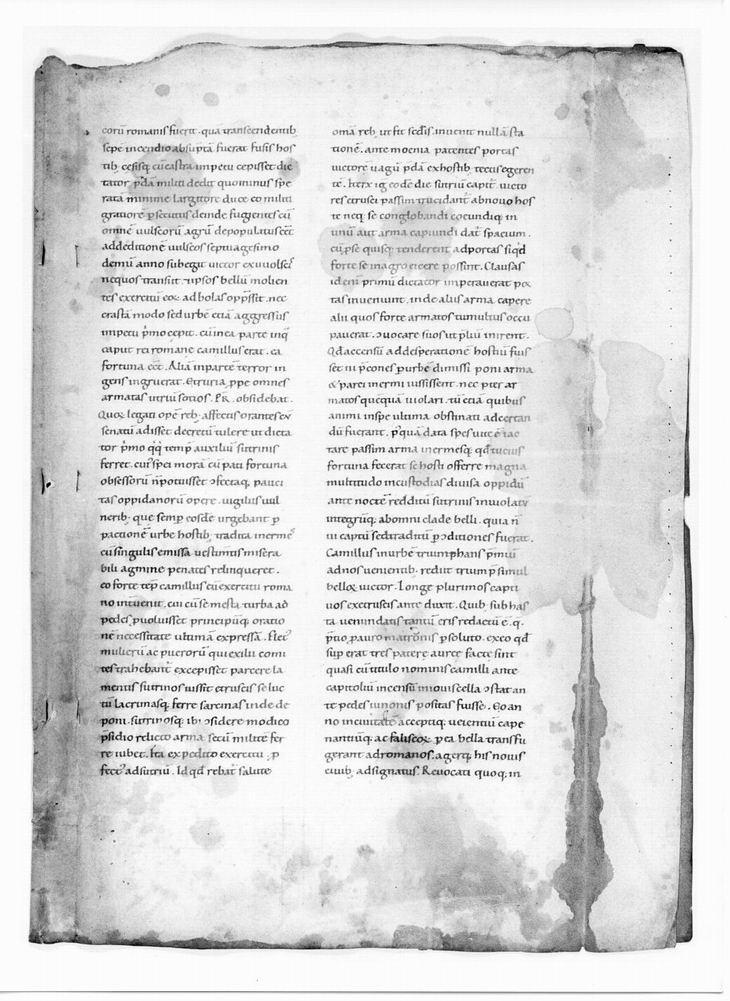 corū romanis fuerit . qua transcendentib;
sepe incendio absūpta fuerat fusis hos
tib; cesisq; cū castra impetu cepisset dic
tator p̄da militi dedit quominus spe
rata minime largitore duce eo militi
gratiorē p̱secutus deinde fugientes cū
omnē uulscorū agrū depopulatus eēt
ad deditionē uulscos septuagesimo
demū anno subegit uictor ex uulscis
in equos transiit & ipsos bellū molien
tes exercitū eoꝝ ad bolas opp̄ssit . nec
castra modo sed urbē etiā aggressus
impetu p̄mo cepit . cū in ea parte in q̄
caput rei romane camillus erat . ea
fortuna eēt . Aliā in parte terror in
gens ingruerat . Etruria p̱pe omnes
armatas utriū socios . P.R. obsidebat .
Quoꝝ legati opē reb; affectis orantes cū
senatū adissēt decretū tulere ut dicta
tor p̄mo q̄q̄ temp̄ auxiliū sutrinis
ferret . cuī spei morā cū pati fortuna
obsessorū n̄ potuisset ɔfectaq; pauci
tas oppidanorū opere . uigiliis uul
nerib; que semp̱ eosdē urgebant p̱
pactionē urbe hostib; tradita inermes
cū singulis emissa uestimtis misera
bili agmine penates relinqueret .
eo forte tēp̄ camillus cū exercitu roma
no interuenit . cui cū se mesta turba ad
pedes puoluisset principūq; oratio
nē necessitate ultima expressā . fletꝰ
mulierū ac puerorū qui exilii comi
tes trahebant̄ excepisset parcere la
mentis sutrinos iussit etruscis se luc
tū lacrimasq; ferre sarcinas inde de
poni . sutrinosq; ibi ɔsidere modico
p̄sidio relicto arma secū militē fer
re iubet . Ita expedito exercitu . p̱
fectꝰ ad sutriū . Id qd̄ rebat̄ soluta
oma reb; ut fit sedis . inuenit nullā sta
tionē . ante moenia patentes portas
uictorē uagū p̄dā ex hostib; tectis egeren
tē . Iterū ig̃ eodē die sutriū capit̄ . victo
res etrusci passim trucidant̄ ab nouo hos
te neq; se conglobandi coeundiq; in
unū aut arma capiundi dat̄ spacium .
cū p̱ se quisq; tenderent ad portas siqd̄
forte se in agro eicere possint . Clausas
id eni primū dictator imperauerat por
tas inueniunt . inde alii arma capere
alii quos forte armatos tumultus occu
pauerat . ɔuocare suos ut p̱liū inirent .
Qd̄ accensū ad desperationē hostiū fuis
set ni p̄cones p̱ urbē dimissi poni arma
& parci inermi iussissent . nec p̱ter ar
matos quēquā uiolari . tū etiā quibus
animi in spe ultima obstinati ad certan
dū fuerant . p̄quā data spes uite ē iac
tare passim arma inermesq; qd̄ tutius
fortuna fecerat se hosti offerre magna
multitudo in custodias diuisa oppidū
ante noctē redditū sutrinis inuiolatū
integrūq; ab omni clade belli . quia n̄
ui captū sed traditū p̱ ɔditiones fuerat .
Camillus in urbē triumphans p̄miū
ad nos uenientib; rediit trium p̄ simul
belloꝝ uictor . Longe plurimos capti
uos ex etruscis ante duxit . Quib; sub has
ta uenundatis tantū eris redactū ē . q̄ .
p̄tio . pauro matronis p̱soluto . ex eo qd̄
sup̱ erat tres patere auree facte sint
quas cū titulo nominis camilli ante
capitoliū incensū in iouis cella ɔstat an
te pedes iunonis positas fuisse . Eo an
no in ciuitatē acceptiq; ueientiū cape
nantiūq; ac faliscoꝝ p̱ ea bella transfu
gerant ad romanos . agerq; his nouis
ciuib; adsignatus . Reuocati quoq; in